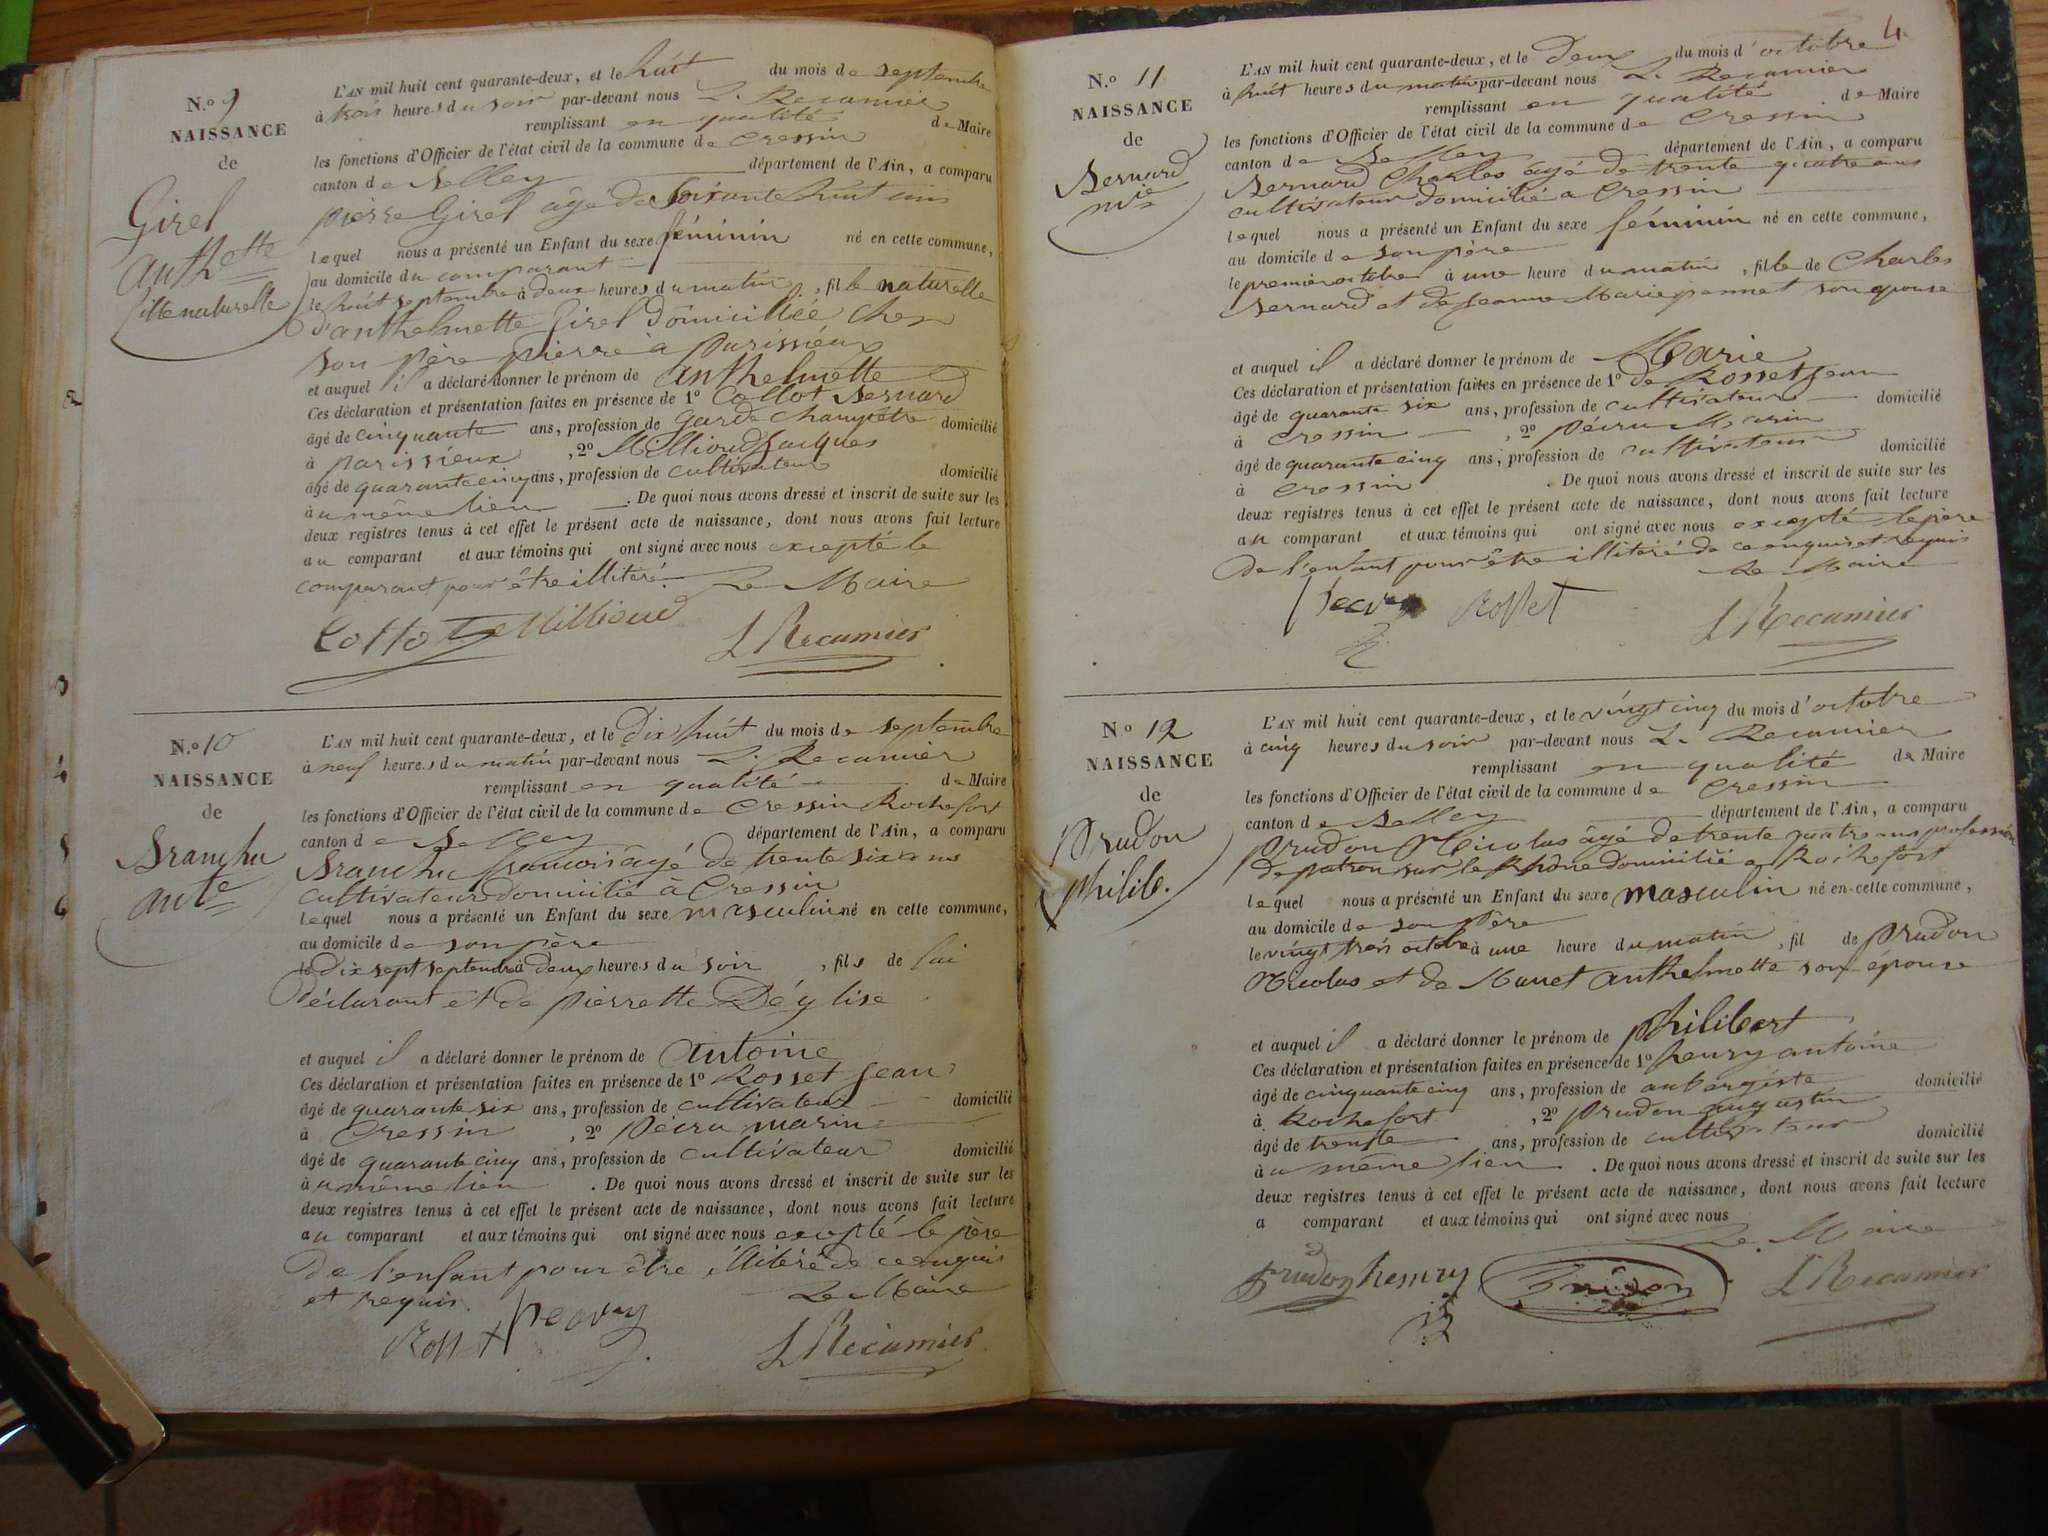 N.º 9
NAISSANCE
de
Girel
Anth.ette
fille naturelle
L'AN mil huit cent quarante-deux, et le huit du mois de septembre
à trois heures du soir par-devant nous L. Recamier
remplissant en qualité de Maire
les fonctions d'Officier de l'état civil de la commune de Cressin
canton de Belley département de l'Ain, a comparu
pierre Girel âgé de soixante huit ans
lequel nous a présenté un Enfant du sexe féminin né en cette commune,
au domicile du comparant
le huit septembre à deux heures du matin, fille naturelle
d'anthelmette Girel domiciliée chez
son père pierre à parissieux
et auquel il a déclaré donner le prénom de anthelmette
Ces déclaration et présentation faites en présence de 1º Collot Bernard
âgé de cinquante ans, profession de garde champêtre domicilié
à parissieux, 2º Millioud Jacques
âgé de quarante cinq ans, profession de cultivateur domicilié
au même lieu. De quoi nous avons dressé et inscrit de suite sur les
deux registres tenus à cet effet le présent acte de naissance, dont nous avons fait lecture
au comparant et aux témoins qui ont signé avec nous excepté le
comparant pour être illitéré. Le Maire
Collot Millioud L Recamier
N.º 10
NAISSANCE
de
Branchu
ant.e
L'AN mil huit cent quarante-deux, et le Dix huit du mois de septembre
à neuf heures du matin par-devant nous L. Recamier
remplissant en qualité de Maire
les fonctions d'Officier de l'état civil de la commune de Cressin Rochefort
canton de Belley département de l'Ain, a comparu
Branchu françois âgé de trente six ans
cultivateur domicilié à Cressin
lequel nous a présenté un Enfant du sexe masculin né en cette commune,
au domicile de son père
le dix sept septembre à deux heures du soir, fils de lui
déclarant et de pierrette Déglise
et auquel il a déclaré donner le prénom de Antoine
Ces déclaration et présentation faites en présence de 1º Rosset Jean
âgé de quarante six ans, profession de cultivateur domicilié
à Cressin, 2º pécru marin
âgé de quarante cinq ans, profession de cultivateur domicilié
au même lieu. De quoi nous avons dressé et inscrit de suite sur les
deux registres tenus à cet effet le présent acte de naissance, dont nous avons fait lecture
au comparant et aux témoins qui ont signé avec nous excepté le père
de l'enfant pour être illitéré de ce enquis
et requis. Le Maire
Rosset L Recamier
4
N.º 11
NAISSANCE
de
Bernard
mie
L'AN mil huit cent quarante-deux, et le Deux du mois d'octobre
à huit heures du matin par-devant nous L. Recamier
remplissant en qualité de Maire
les fonctions d'Officier de l'état civil de la commune de Cressin
canton de Belley département de l'Ain, a comparu
Bernard Charles âgé de trente quatre ans
cultivateur domicilié a Cressin
lequel nous a présenté un Enfant du sexe féminin né en cette commune,
au domicile de son père
le premier octobre à une heure du matin, fille de Charles
Bernard et de Jeanne Marie ponnet son epouse
et auquel il a déclaré donner le prénom de Marie
Ces déclaration et présentation faites en présence de 1º de Rosset Jean
âgé de quarante six ans, profession de cultivateur domicilié
à Cressin, 2º pécru Marin
âgé de quarante cinq ans, profession de cultivateur domicilié
à Cressin. De quoi nous avons dressé et inscrit de suite sur les
deux registres tenus à cet effet le présent acte de naissance, dont nous avons fait lecture
au comparant et aux témoins qui ont signé avec nous excepté le père
de l'enfant pour être illitéré de ce enquis et requis
Le Maire
Rosset L Recamier
Nº 12
NAISSANCE
de
Prudon
philib.
L'AN mil huit cent quarante-deux, et le vingt cinq du mois d'octobre
à cinq heures du soir par-devant nous L. Recamier
remplissant en qualité de Maire
les fonctions d'Officier de l'état civil de la commune de Cressin
canton de Belley département de l'Ain, a comparu
prudon Nicolas âgé de trente quatre ans profession
de patron sur le Rhône domicilié a Rochefort
lequel nous a présenté un Enfant du sexe masculin né en cette commune,
au domicile de son père
le vingt trois octobre à une heure du matin, fil de prudon
Nicolas et de Manet anthelmette son épouse
et auquel il a déclaré donner le prénom de philibert
Ces déclaration et présentation faites en présence de 1º henry antoine
âgé de cinquante cinq ans, profession de aubergiste domicilié
à Rochefort, 2º prudon augustin
âgé de trente ans, profession de cultivateur domicilié
au même lieu. De quoi nous avons dressé et inscrit de suite sur les
deux registres tenus à cet effet le présent acte de naissance, dont nous avons fait lecture
a comparant et aux témoins qui ont signé avec nous
Le Maire
Prudon henry Prudon L Recamier